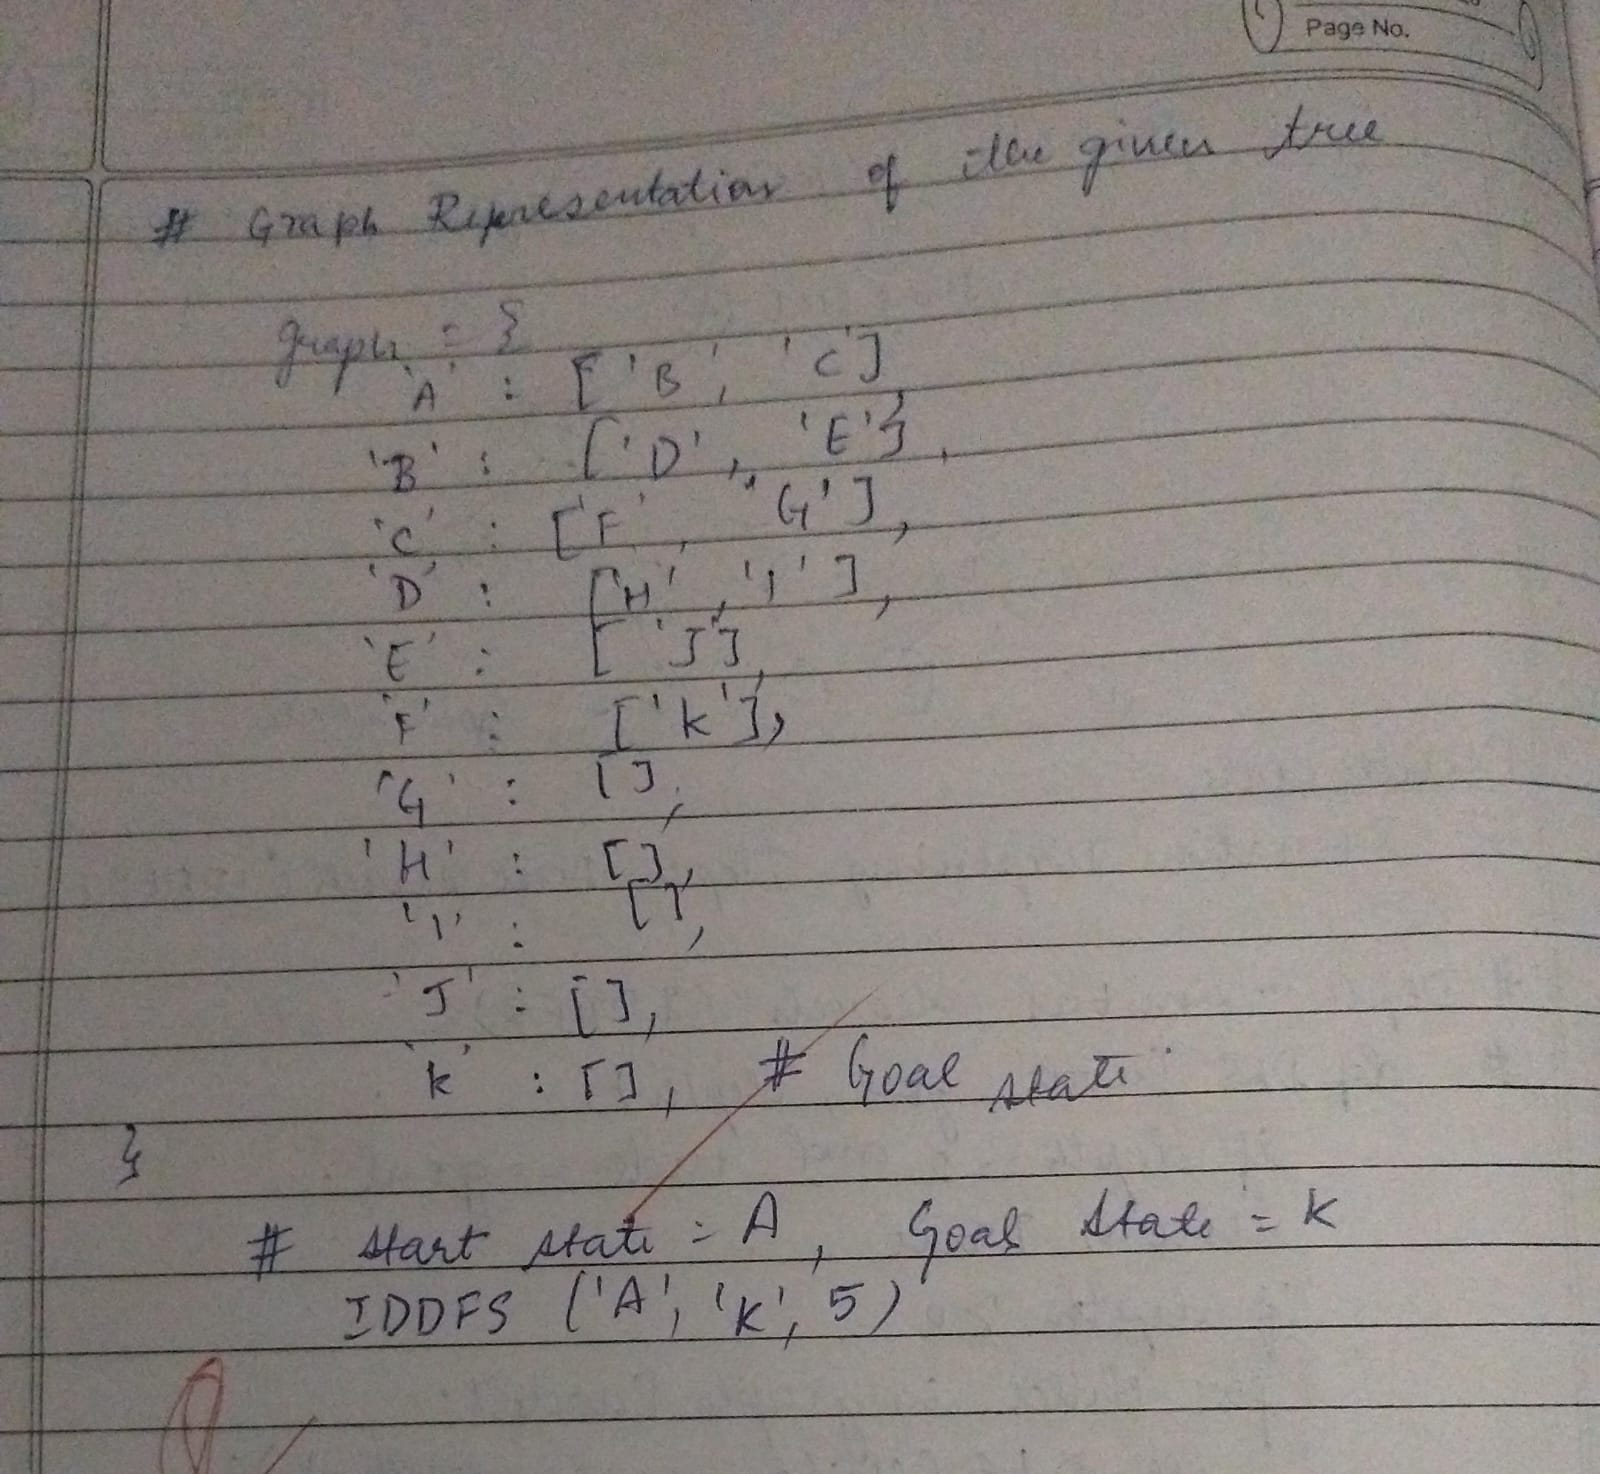 Page No.
# Graph Representation of the given tree
graph = {
'A' : ['B', 'C'],
'B' : ['D', 'E'],
'C' : ['F', 'G'],
'D' : ['H', 'I'],
'E' : ['J'],
'F' : ['K'],
'G' : [],
'H' : [],
'I' : [],
'J' : [],
'K' : [], # Goal state
}
# start state = A, Goal state = K
IDDFS ('A', 'K', 5)